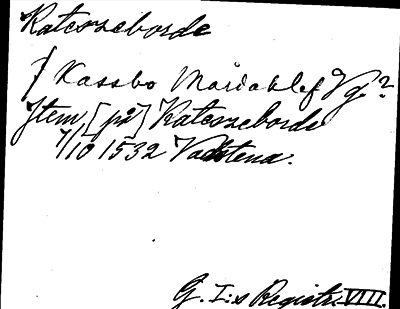 Katerszeborde
/ Kassbo Mariaklef Vg.?
Item [på] Katerszeborde
7/10 1532 Vadstena.
G. I:s Registr. VIII.